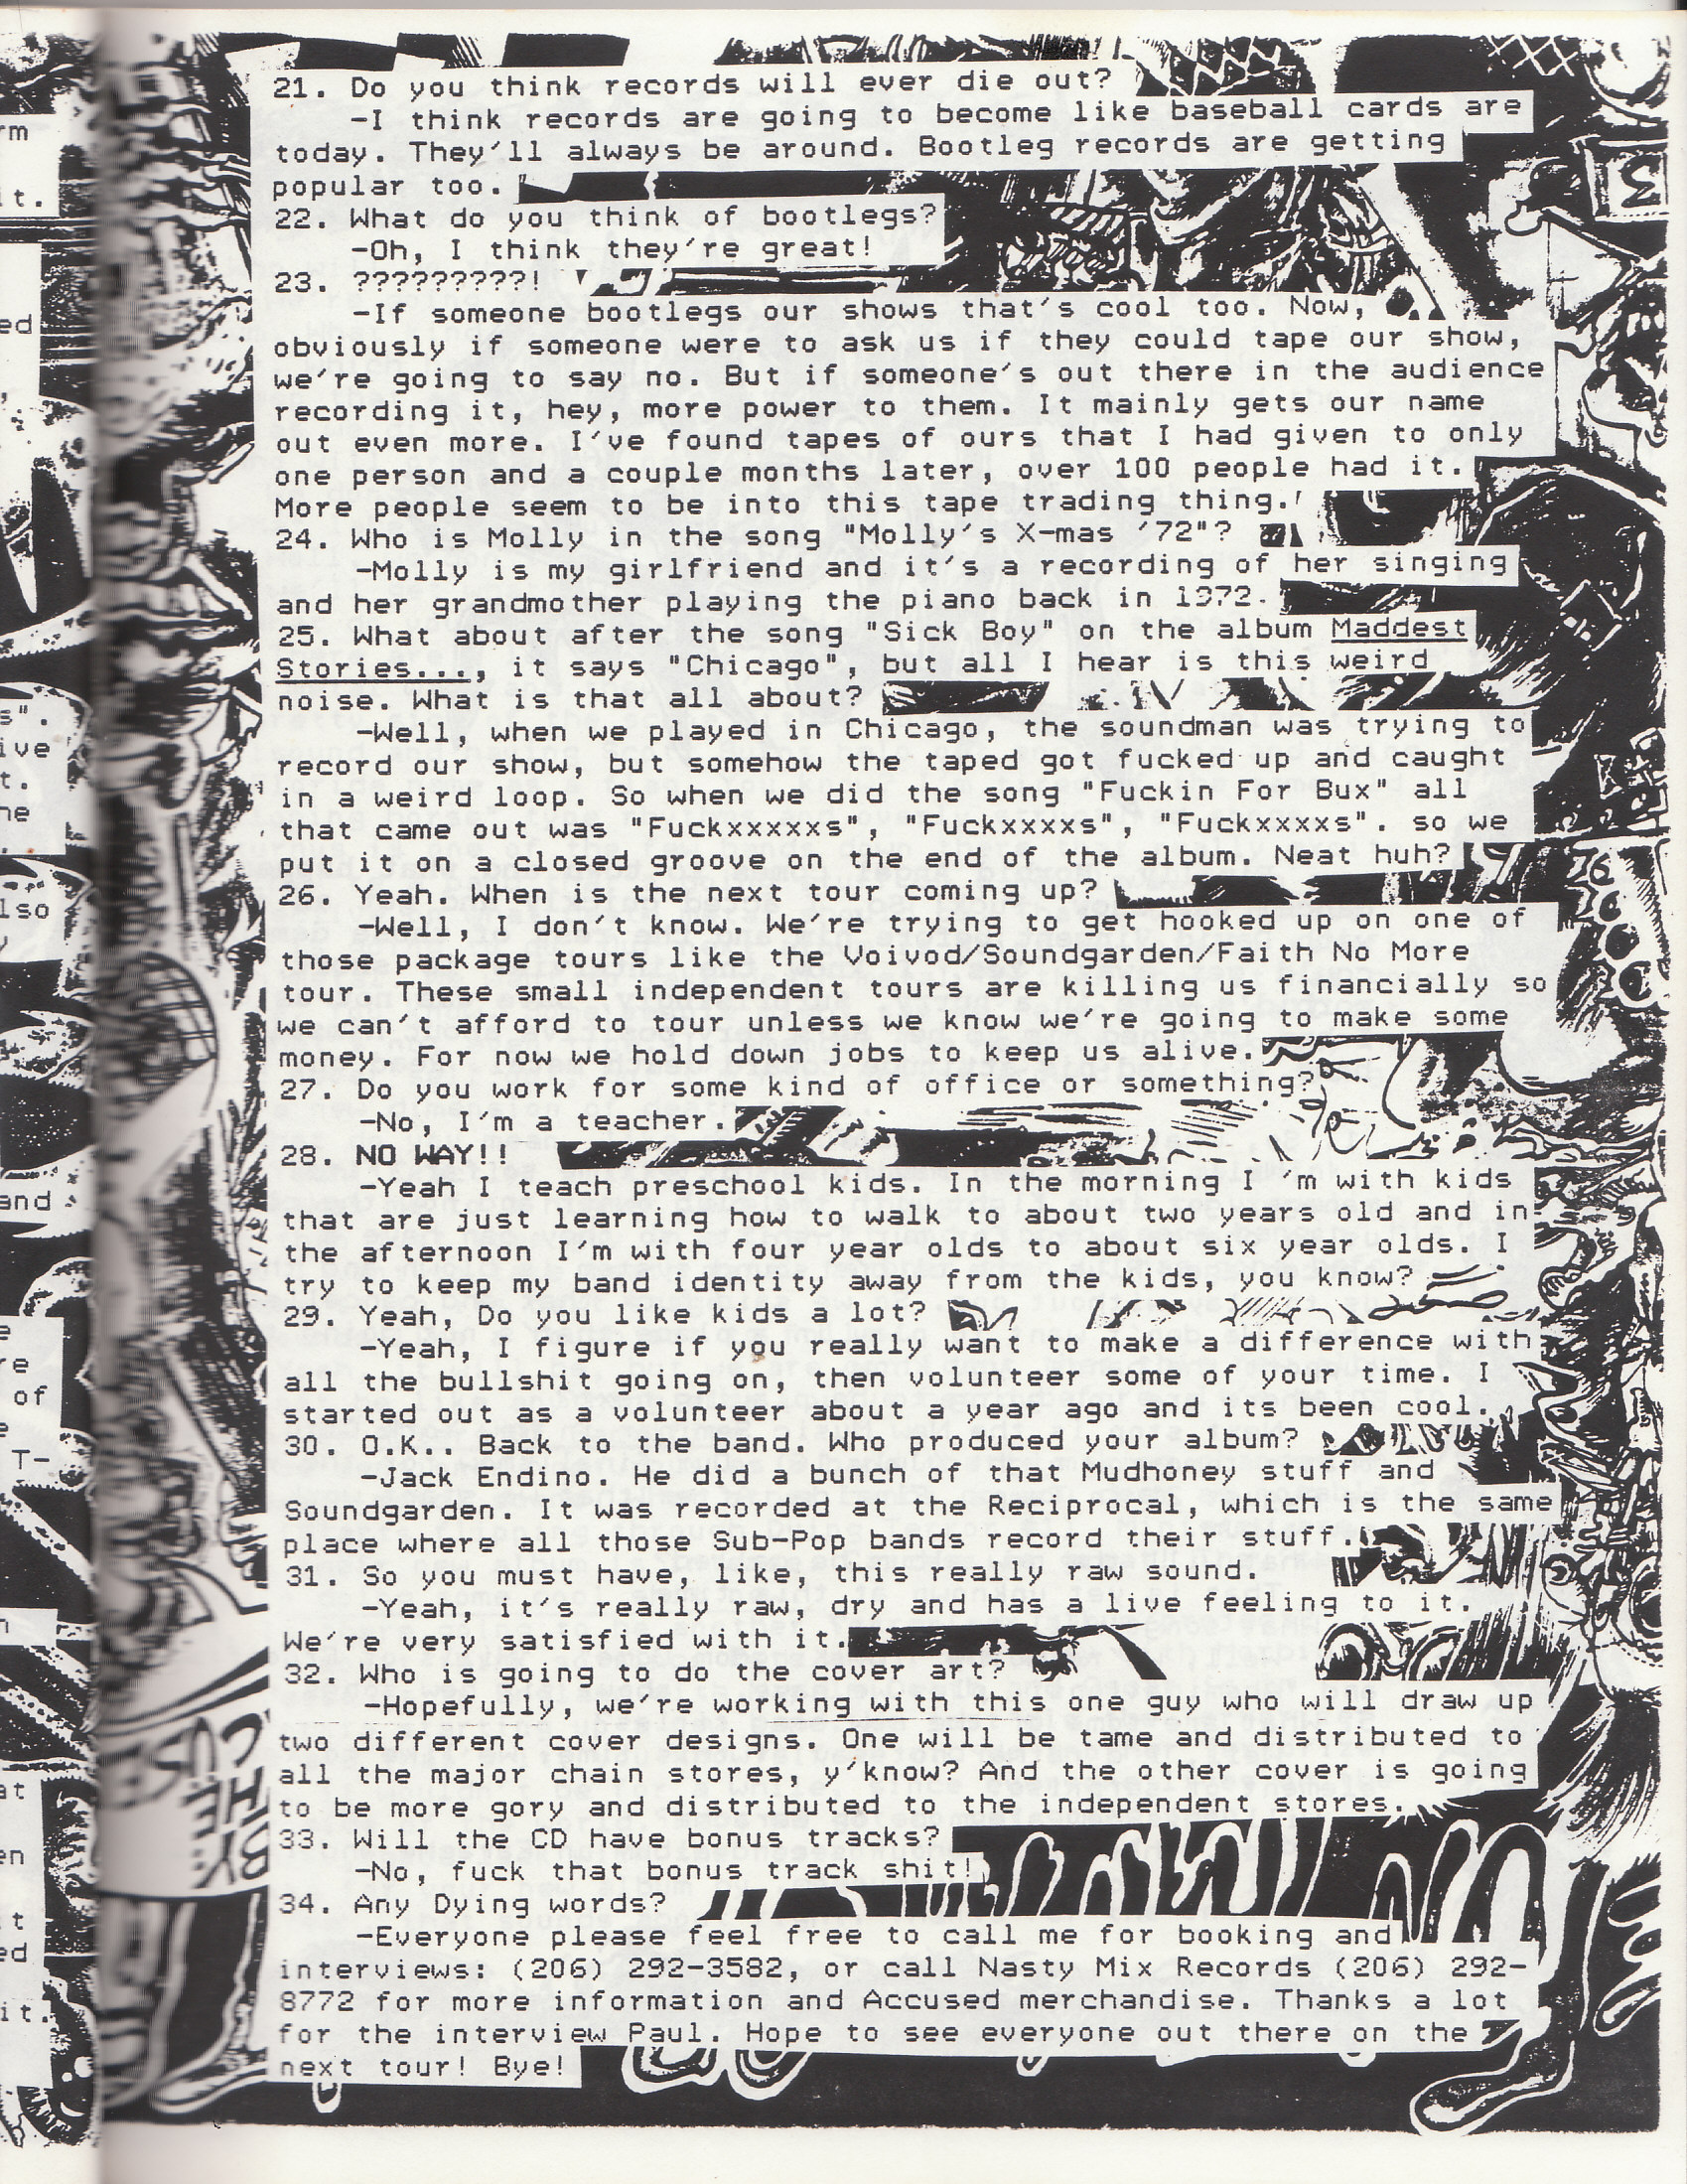 21. Do you think records will ever die out?
-I think records are going to become like baseball cards are
today. They'll always be around. Bootleg records are getting
popular too.
22. What do you think of bootlegs?
-Oh, I think they're great!
23. ?????????!
-If someone bootlegs our shows that's cool too. Now,
obviously if someone were to ask us if they could tape our show,
we're going to say no. But if someone's out there in the audience
recording it, hey, more power to them. It mainly gets our name
out even more. I've found tapes of ours that I had given to only
one person and a couple months later, over 100 people had it.
More people seem to be into this tape trading thing.
24. Who is Molly in the song "Molly's X-mas '72"?
-Molly is my girlfriend and it's a recording of her singing
and her grandmother playing the piano back in 1972.
25. What about after the song "Sick Boy" on the album Maddest
Stories..., it says "Chicago", but all I hear is this weird
noise. What is that all about?
-Well, when we played in Chicago, the soundman was trying to
record our show, but somehow the taped got fucked up and caught
in a weird loop. So when we did the song "Fuckin For Bux" all
that came out was "Fuckxxxxxs", "Fuckxxxxs", "Fuckxxxxs". so we
put it on a closed groove on the end of the album. Neat huh?
26. Yeah. When is the next tour coming up?
-Well, I don't know. We're trying to get hooked up on one of
those package tours like the Voivod/Soundgarden/Faith No More
tour. These small independent tours are killing us financially so
we can't afford to tour unless we know we're going to make some
money. For now we hold down jobs to keep us alive.
27. Do you work for some kind of office or something?
-No, I'm a teacher.
28. NO WAY!!
-Yeah I teach preschool kids. In the morning I 'm with kids
that are just learning how to walk to about two years old and in
the afternoon I'm with four year olds to about six year olds. I
try to keep my band identity away from the kids, you know?
29. Yeah, Do you like kids a lot?
-Yeah, I figure if you really want to make a difference with
all the bullshit going on, then volunteer some of your time. I
started out as a volunteer about a year ago and its been cool.
30. O.K.. Back to the band. Who produced your album?
-Jack Endino. He did a bunch of that Mudhoney stuff and
Soundgarden. It was recorded at the Reciprocal, which is the same
place where all those Sub-Pop bands record their stuff.
31. So you must have, like, this really raw sound.
-Yeah, it's really raw, dry and has a live feeling to it.
We're very satisfied with it.
32. Who is going to do the cover art?
-Hopefully, we're working with this one guy who will draw up
two different cover designs. One will be tame and distributed to
all the major chain stores, y'know? And the other cover is going
to be more gory and distributed to the independent stores.
33. Will the CD have bonus tracks?
-No, fuck that bonus track shit!
34. Any Dying words?
-Everyone please feel free to call me for booking and
interviews: (206) 292-3582, or call Nasty Mix Records (206) 292-
8772 for more information and Accused merchandise. Thanks a lot
for the interview Paul. Hope to see everyone out there on the
next tour! Bye!